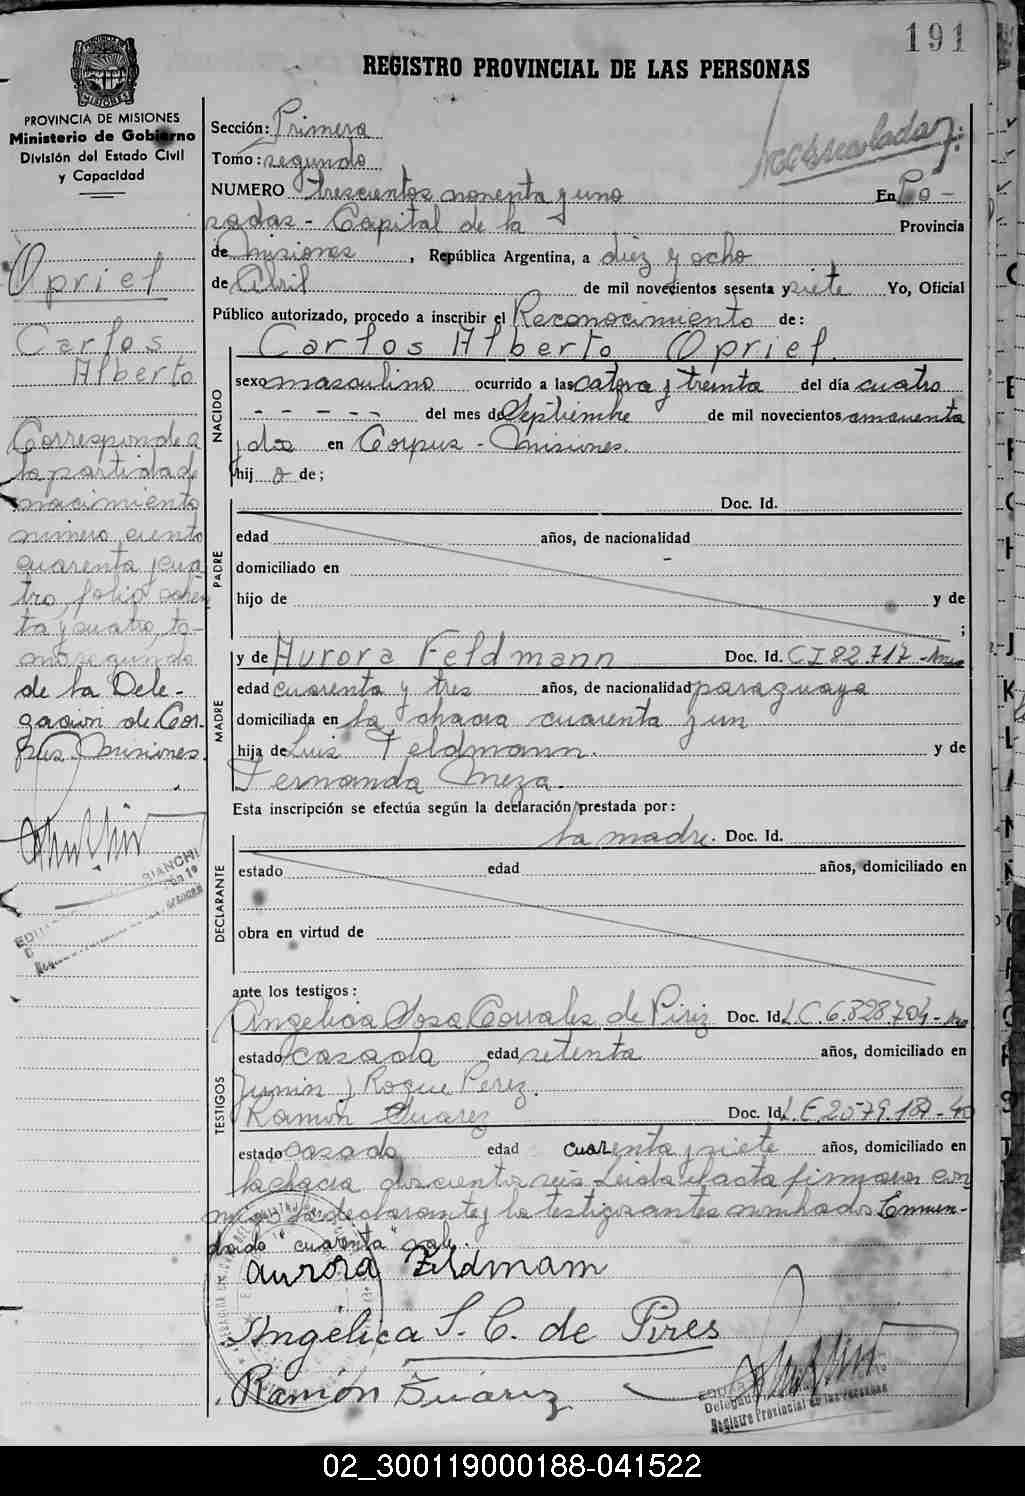 191
REGISTRO PROVINCIAL DE LAS PERSONAS
MISIONES
PROVINCIA DE MISIONES
Ministerio de Gobierno
División del Estado Civil
y Capacidad
Opriel
Carlos
Alberto
Corresponde a
la partida de
nacimiento
número ciento
cuarenta y cua
tro, folio ochen
ta y cuatro, to-
mo segundo
de la Dele-
gación de Cor-
pus. Misiones.
BIANCHI
Sección: Primera
Tomo: segundo
NUMERO trescientos noventa y uno En Po-
sadas - Capital de la Provincia
de Misiones, República Argentina, a diez y ocho
de Abril de mil novecientos sesenta y siete Yo, Oficial
Público autorizado, procedo a inscribir el Reconocimiento de:
Carlos Alberto Opriel.
NACIDO
sexo masculino ocurrido a las catorce y treinta del día cuatro
- - - - - del mes de Septiembre de mil novecientos cincuenta
y dos en Corpus - Misiones.
hijo de;
PADRE
Doc. Id.
edad años, de nacionalidad
domiciliado en
hijo de y de
;
MADRE
y de Aurora Feldmann Doc. Id. C I 82.717-Mnes
edad cuarenta y tres años, de nacionalidad paraguaya
domiciliada en la chacra cuarenta y un
hija de Luis Feldmann. y de
Fernanda Meza.
Esta inscripción se efectúa según la declaración prestada por:
la madre. Doc. Id.
DECLARANTE
estado edad años, domiciliado en
obra en virtud de
ante los testigos:
TESTIGOS
Angelica Sosa Corrales de Piriz Doc. Id. L.C. 6.828.704-
estado casada edad setenta años, domiciliado en
Junin y Roque Perez.
Ramón Suarez Doc. Id. L.E. 2.579.
estado casado edad cuarenta y siete años, domiciliado en
la chacra doscientos seis. Leida el acta firmaron con
migo la declarante y los testigos antes nombrados. Enmen-
dado "cuarenta" vale.
aurora Feldmam
Angélica S. C. de Pires
Ramón Suárez
Registro Provincial de las Personas
02_300119000188-041522